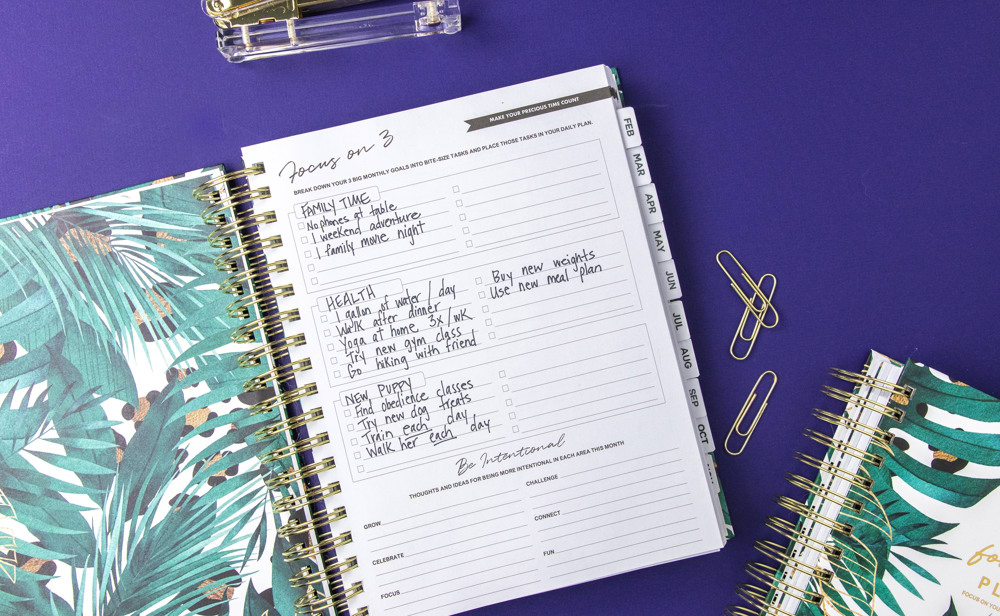 MAKE YOUR PRECIOUS TIME COUNT
Focus on 3
BREAK DOWN YOUR 3 BIG MONTHLY GOALS INTO BITE-SIZE TASKS AND PLACE THOSE TASKS IN YOUR DAILY PLAN.
FAMILY TIME
No phones at table
1 weekend adventure
1 family movie night
HEALTH
1 gallon of water / day
Walk after dinner
Yoga at home 3x/wk
Try new gym class
Go hiking with friend
Buy new weights
Use new meal plan
NEW PUPPY
Find obedience classes
Try new dog treats
Train each day
Walk her each day
Be Intentional
THOUGHTS AND IDEAS FOR BEING MORE INTENTIONAL IN EACH AREA THIS MONTH
GROW
CELEBRATE
FOCUS
CHALLENGE
CONNECT
FUN
FEB
MAR
APR
MAY
JUN
JUL
AUG
SEP
OCT
FOCUS ON